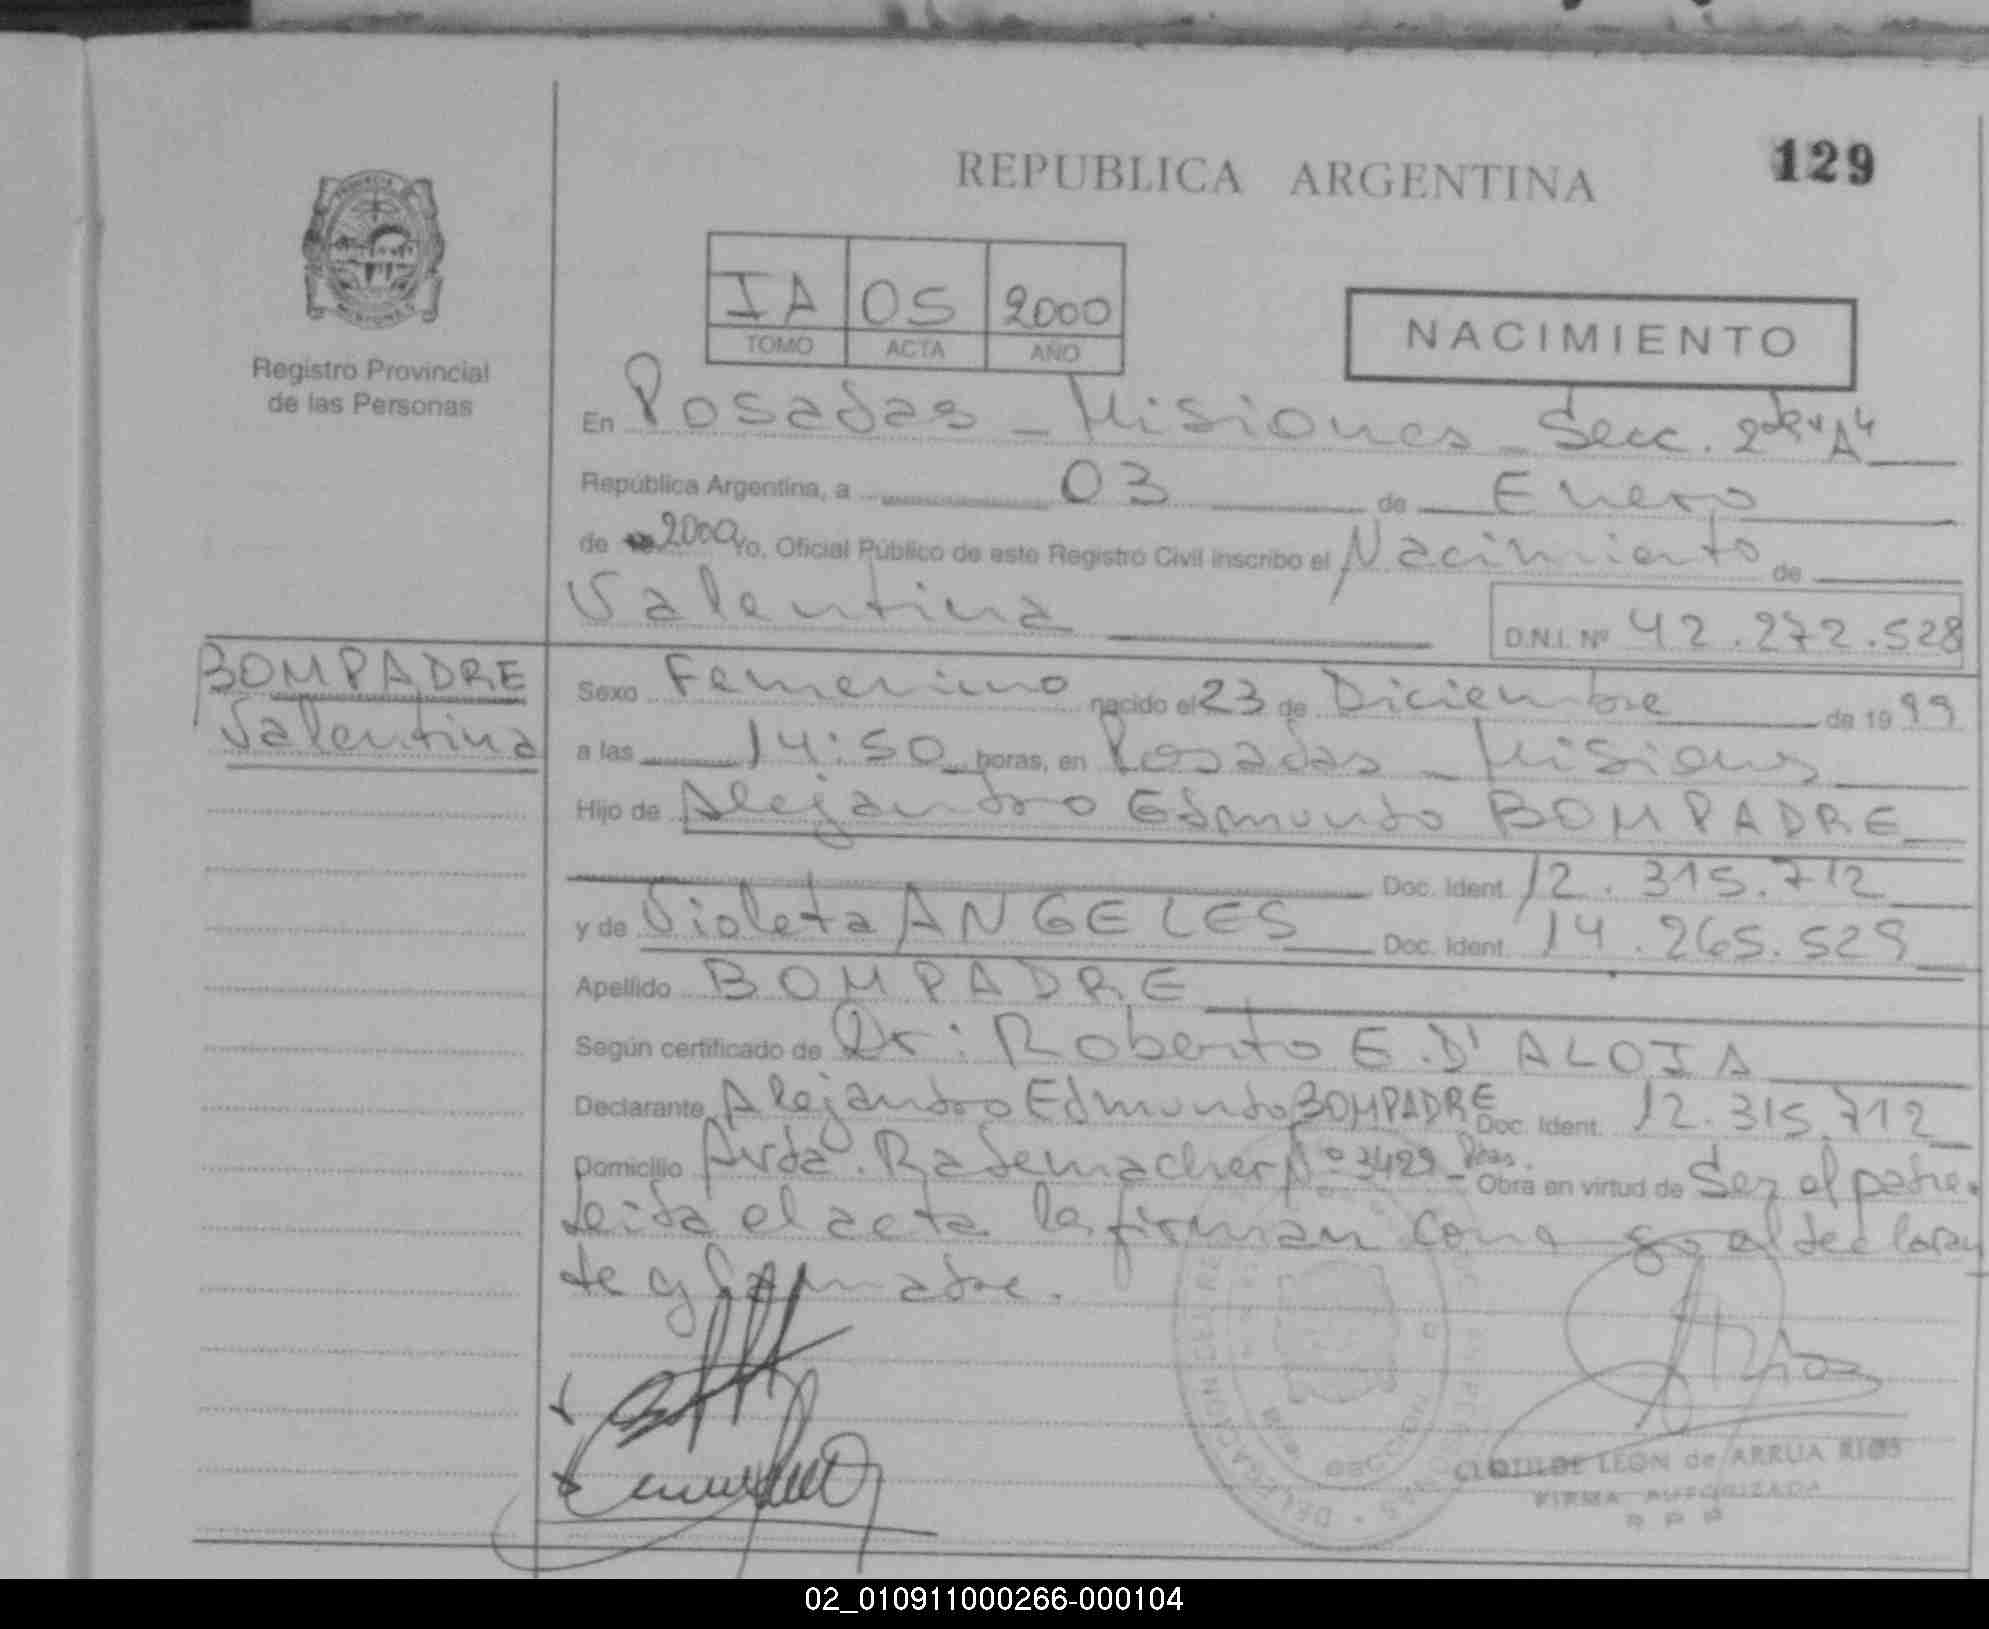 REPUBLICA ARGENTINA
129
Registro Provincial
de las Personas
IA 05 2000
TOMO ACTA AÑO
NACIMIENTO
En Posadas - Misiones - Secc. 2da "A"
República Argentina, a 03 de Enero
de 2000 Yo, Oficial Público de este Registro Civil inscribo el Nacimiento de
Valentina
D.N.I. Nº 42.272.528
BOMPADRE
Valentina
Sexo Femenino nacido el 23 de Diciembre de 1999
a las 14:50 horas, en Posadas - Misiones
Hijo de Alejandro Edmundo BOMPADRE
Doc. Ident. 12.315.712
y de Violeta ANGELES Doc. Ident. 14.265.529
Apellido BOMPADRE
Según certificado de Dr: Roberto E. D'ALOIA
Declarante Alejandro Edmundo BOMPADRE Doc. Ident. 12.315.712
Domicilio Avda. Rademacher Nº 3429 - Pdas. Obra en virtud de Ser el padre.
Leida el acta la firman conmigo el declaran
te y la madre.
CLOTILDE LEON de ARRUA RIOS
FIRMA AUTORIZADA
R P P
02_010911000266-000104